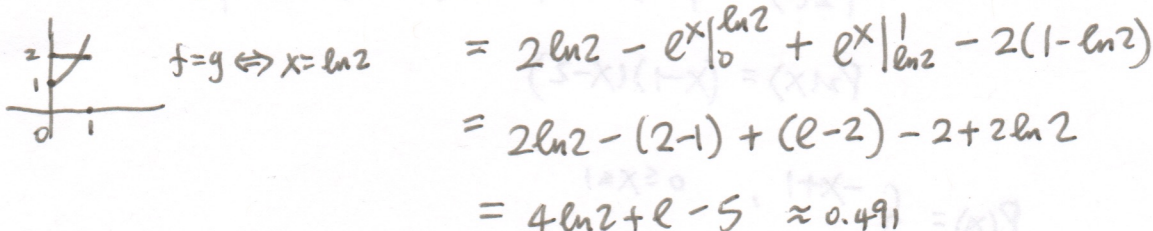 2
1
0 1
f=g ⇔ x= ln2
= 2ln2 - e^x|_0^{ln2} + e^x|_{ln2}^1 - 2(1-ln2)
= 2ln2 - (2-1) + (e-2) - 2 + 2ln2
= 4ln2 + e - 5 ≈ 0.491